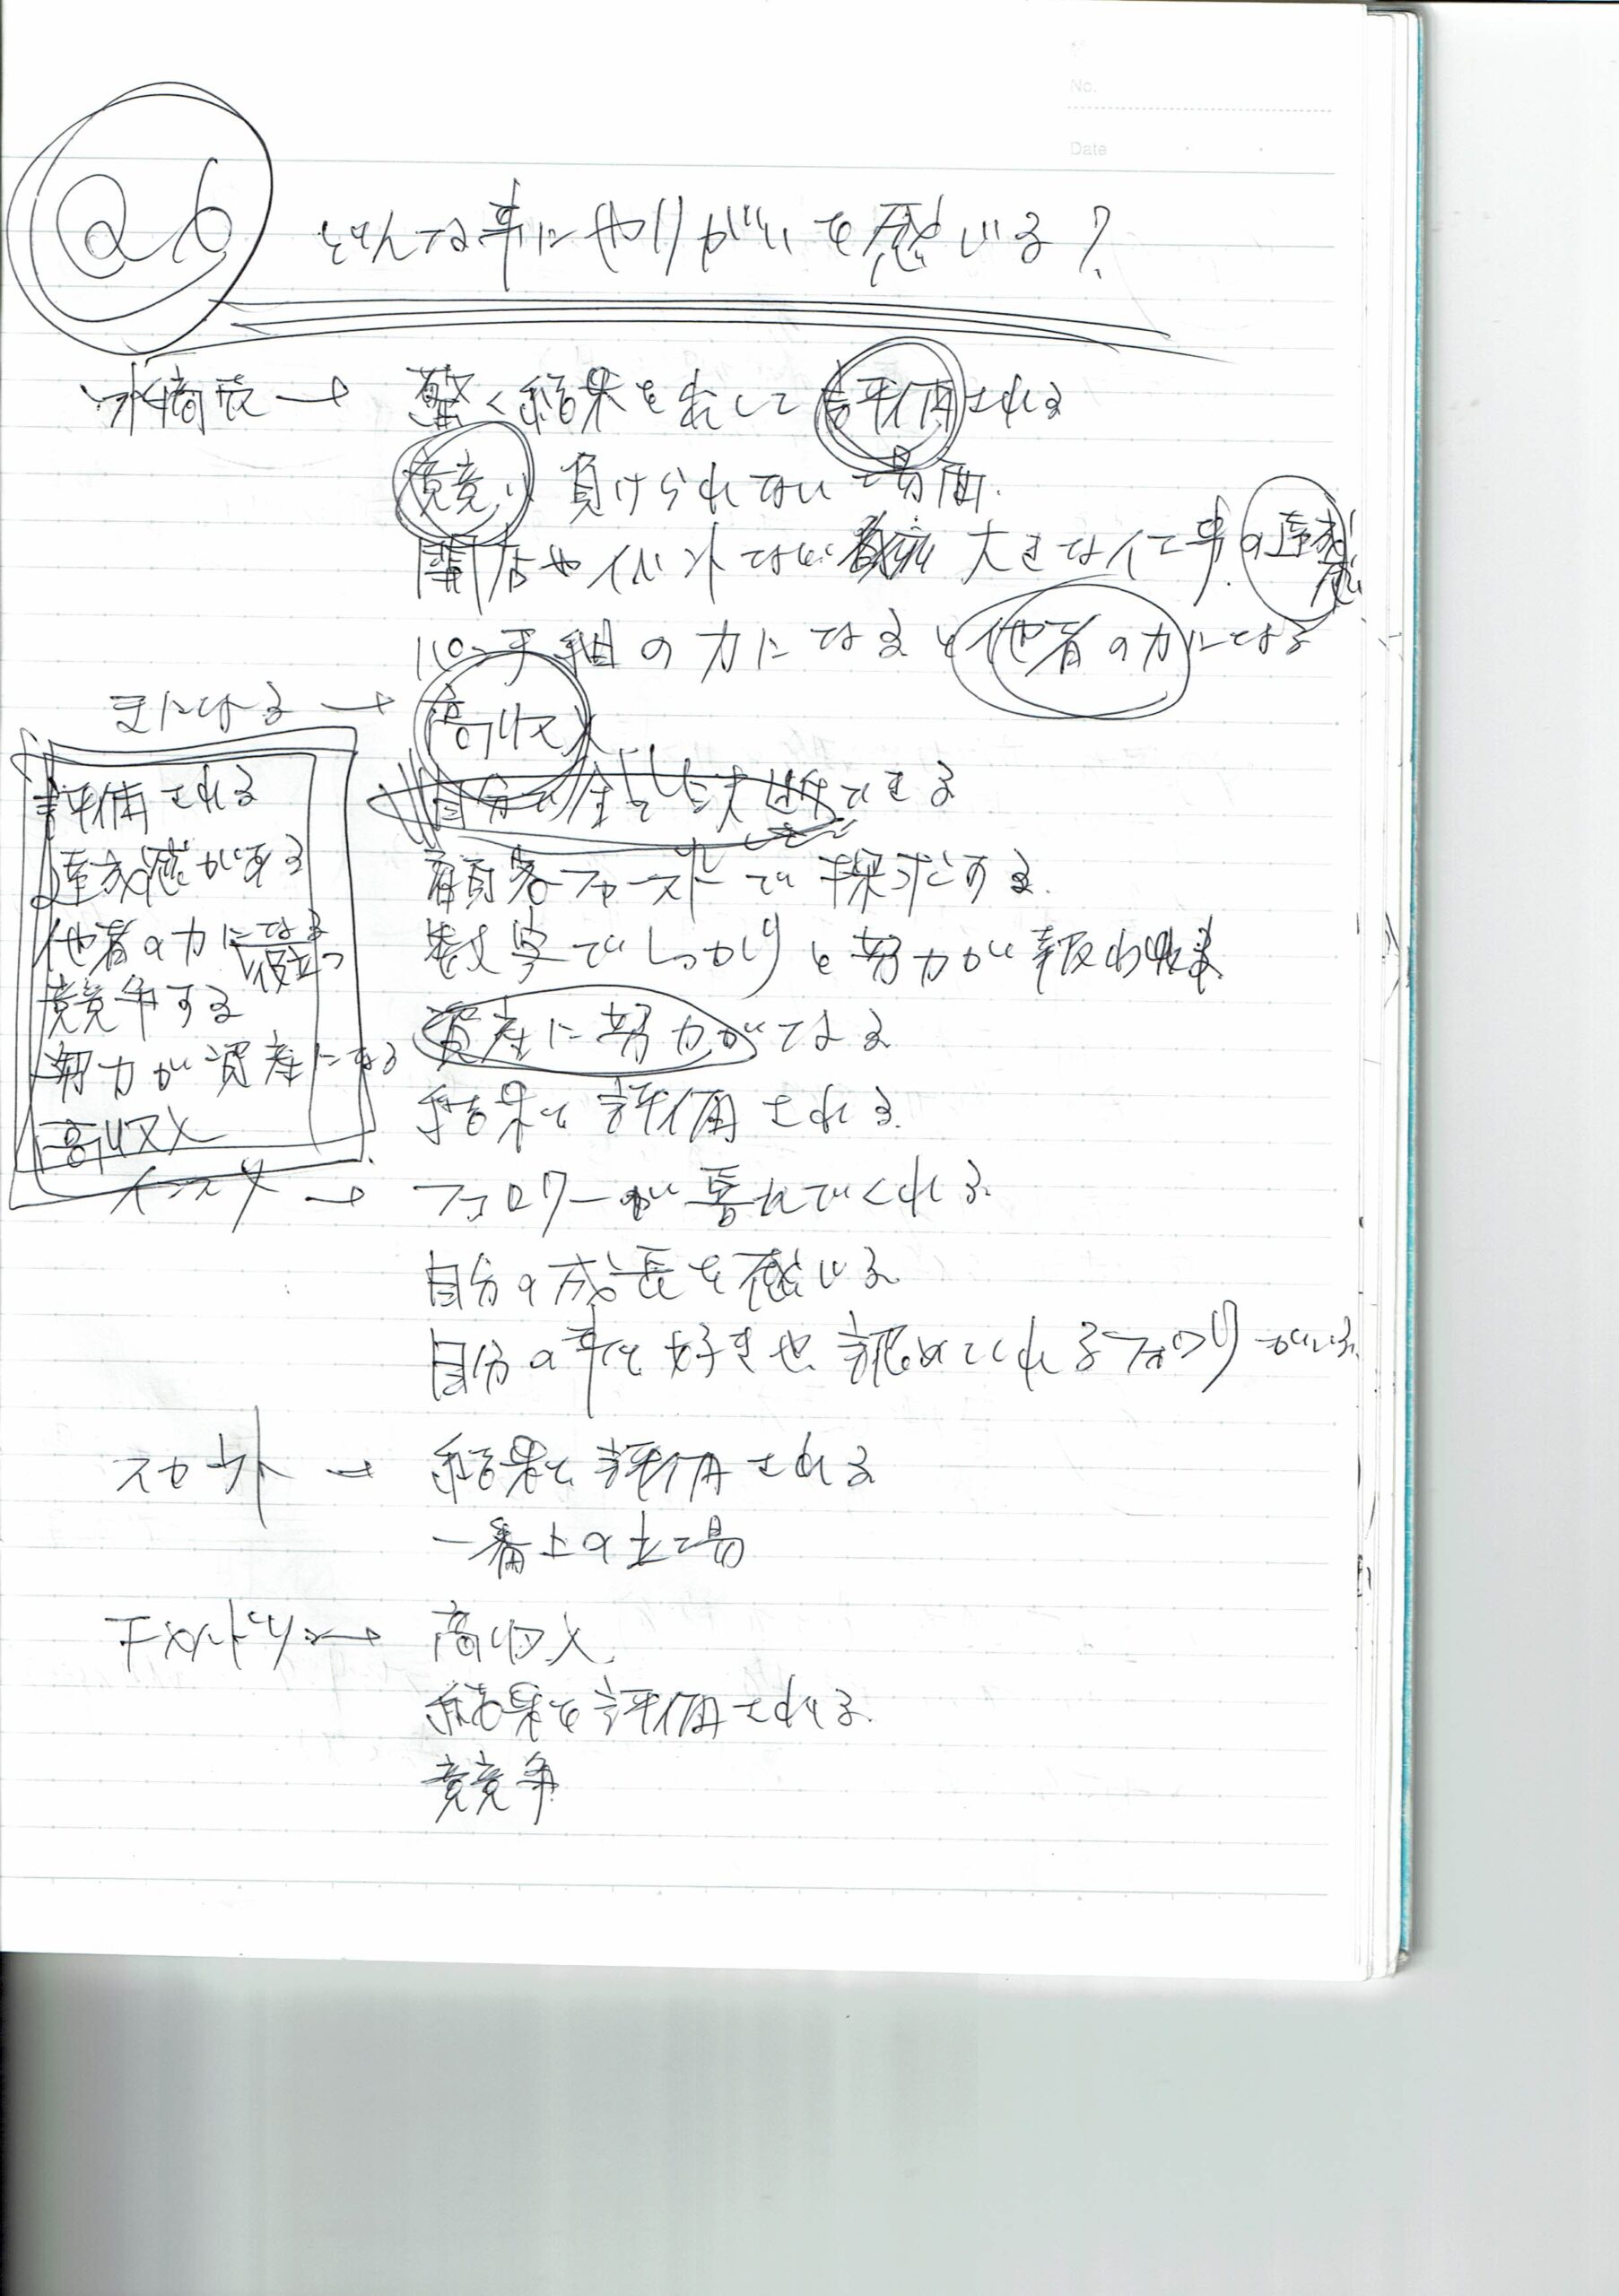 No.
Date
Q6 どんな事にやりがいを感じる?
水商売→ 驚く結果を出して評価される
競い負けられない場面.
開店やイベントなど 大きな仕事の達成感
パン子組の力になると他者の力になる
→ 高収入
自分で全て決断できる
顧客ファーストで探求する.
数字でしっかりと努力が報われる
資産に努力がなる
結果を評価される.
評価される
達成感がある
他者の力になる
役立つ
競争する
努力が資産になる
高収入
インスタ → フォロワーが喜んでくれる.
自分の成長を感じる
自分の事を好きや認めてくれるフォロワーがいる.
スカウト → 結果を評価される
一番上の立場
→ 高収入.
結果を評価される.
競争